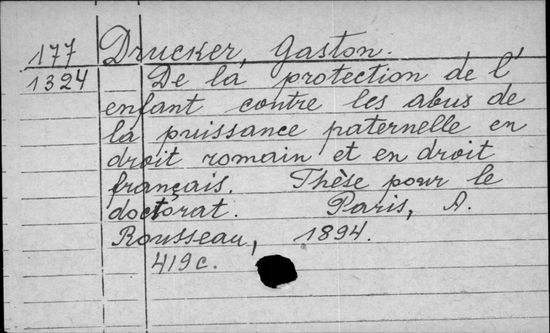 177 Drucker, Gaston.
1324 De la protection de l'
enfant contre les abus de
la puissance paternelle en
droit romain et en droit
français. Thèse pour le
doctorat. Paris, A.
Rousseau, 1894.
419c.